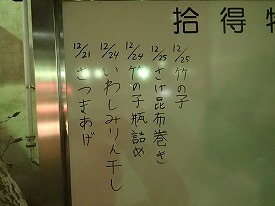 拾得物
12/25 竹の子
12/25 さけ昆布巻き
12/24 竹の子瓶詰め
12/24 いわしみりん干し
12/21 さつまあげ